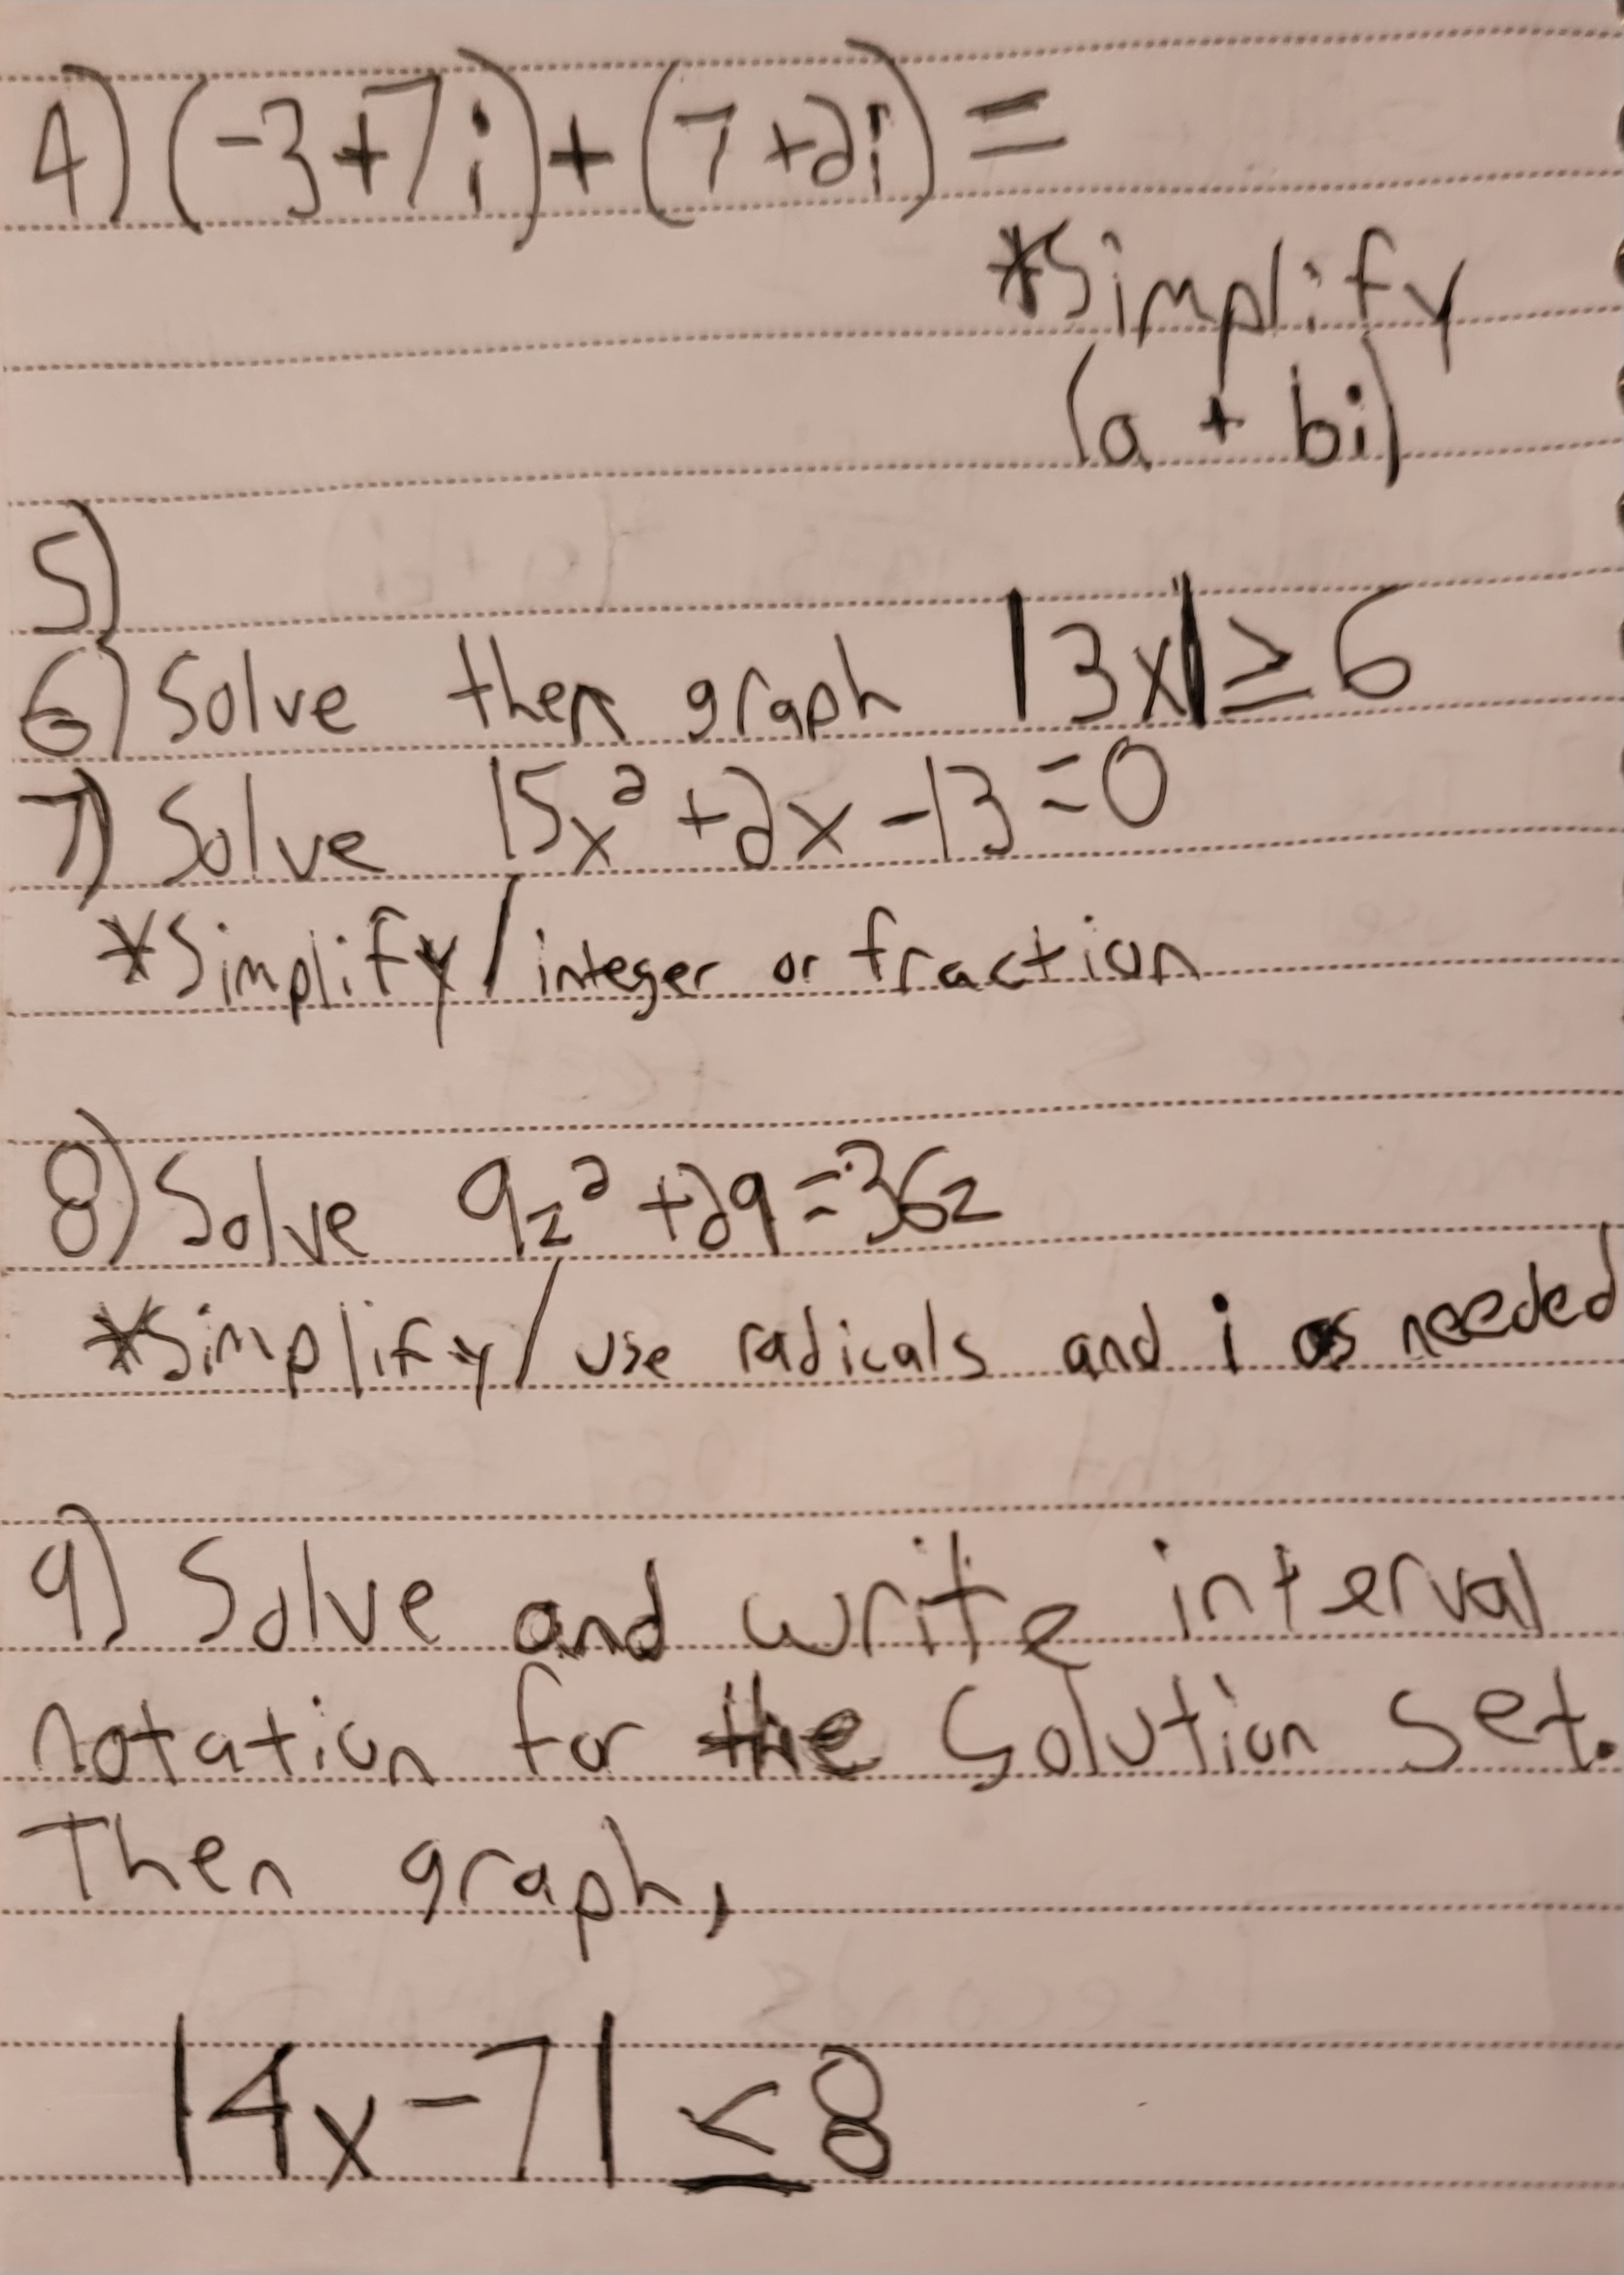 4) (-3+7i)+(7+2i)=
*Simplify
(a + bi)
5)
6) Solve then graph |3x|≥6
7) Solve 15x²+2x-13=0
*Simplify/integer or fraction
8) Solve 9z²+29=36z
*Simplify/use radicals and i as needed
9) Solve and write interval
notation for the Solution set.
Then graph,
|4x-7|≤8